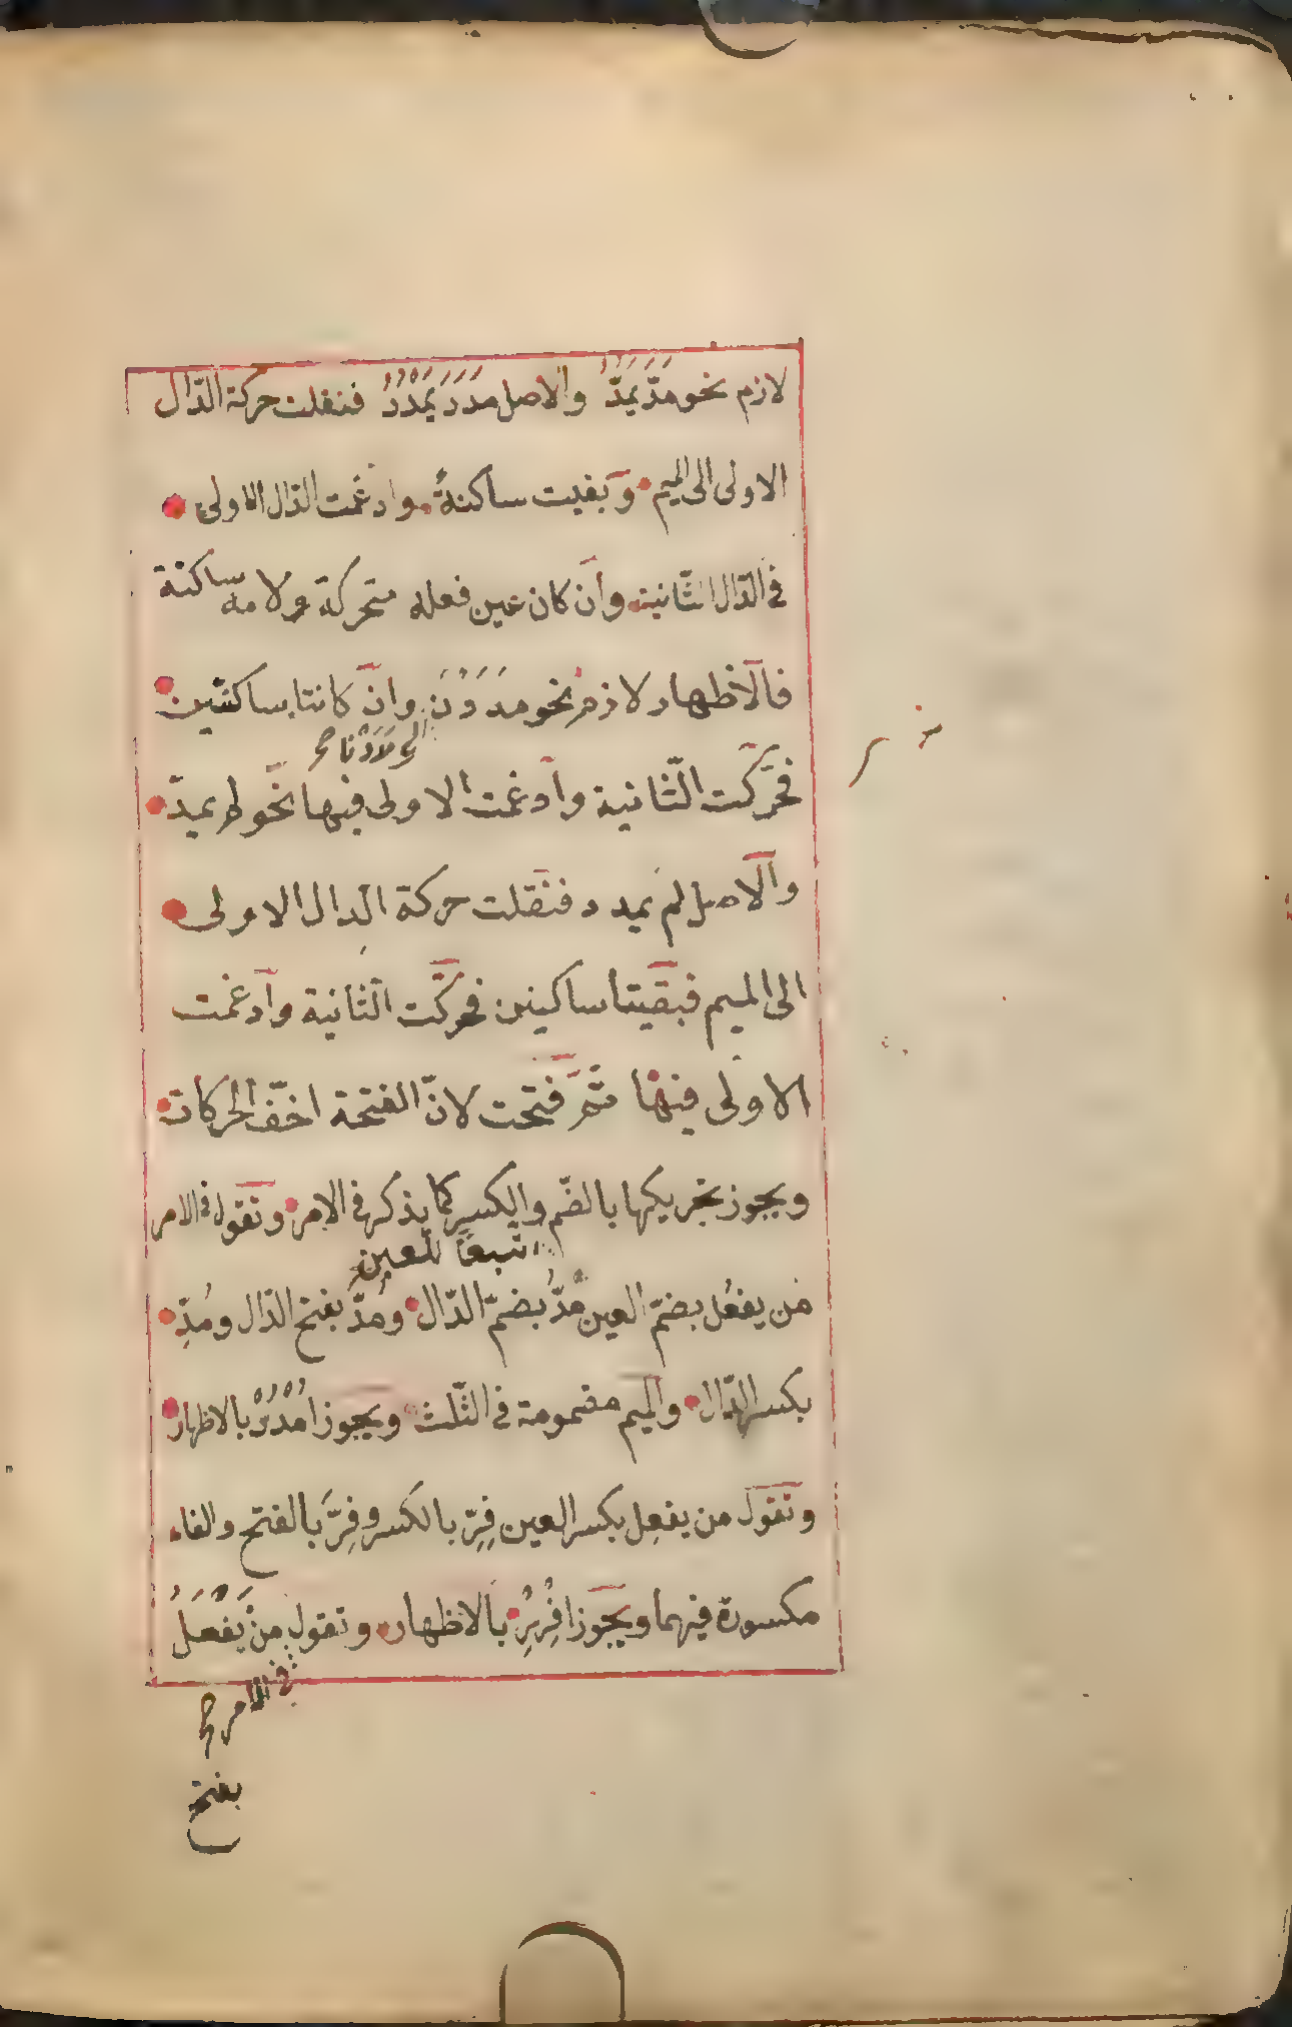 لازم نحو مَدَّ يَمُدُّ والاصل مَدَدَ يَمْدُدُ فنقلت حركة الدّال
الاولى الى الميم وبقيت ساكنةً وادغمت الدّال الاولى
فى الدّال الثّانية وان كان عين فعله متحركة ولامه ساكنة
فالاظهار لازم نحو مَدَدْنَ وان كانتا ساكنتين
نحو مَدَدْنَا صح
فحرّكت الثّانية وادغمت الاولى فيها نحو لم يمدّ
والاصل لم يمدد فنقلت حركة الدال الاولى
الى الميم فبقيتا ساكنين فحركّت الثّانية وادغمت
الاولى فيها ثمّ فتحت لانّ الفتحة اخفّ الحركات
ويجوز تحريكها بالضّم والكسر كما يذكر فى الامر وتقول فى الامر
تبعًا للعين
من يفعُل بضمّ العين مُدُّ بضمّ الدّال ومُدَّ بفتح الدّال ومُدِّ
بكسر الدّال والميم مضمومة فى الثّلث ويجوز اُمْدُدْ بالاظهار
وتقول من يفعِل بكسر العين فِرِّ بالكسر وفِرَّ بالفتح والفاء
مكسورة فيهما ويجوز افْرِرْ بالاظهار وتقول من يَفْعَلُ
فى الامر صح
بفتح